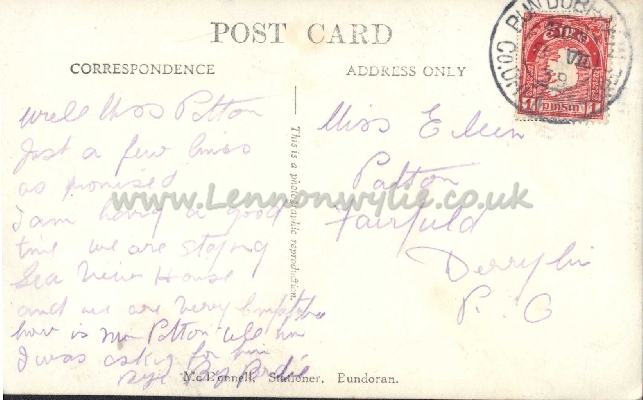 POST CARD
CORRESPONDENCE
ADDRESS ONLY
Well Miss Patton
Just a few lines
as promised
I am having a good
time we are staying
Sea View House
and we are very
how is Mr Patton tell him
I was asking for him
bye Bye
Miss Eileen
Patton
Fairfield
Derrylin
P. O
This is a photographic reproduction.
McDonnell, Stationer, Bundoran.
www.Lennonwylie.co.uk
BUNDORAN
CO.
VIII
1